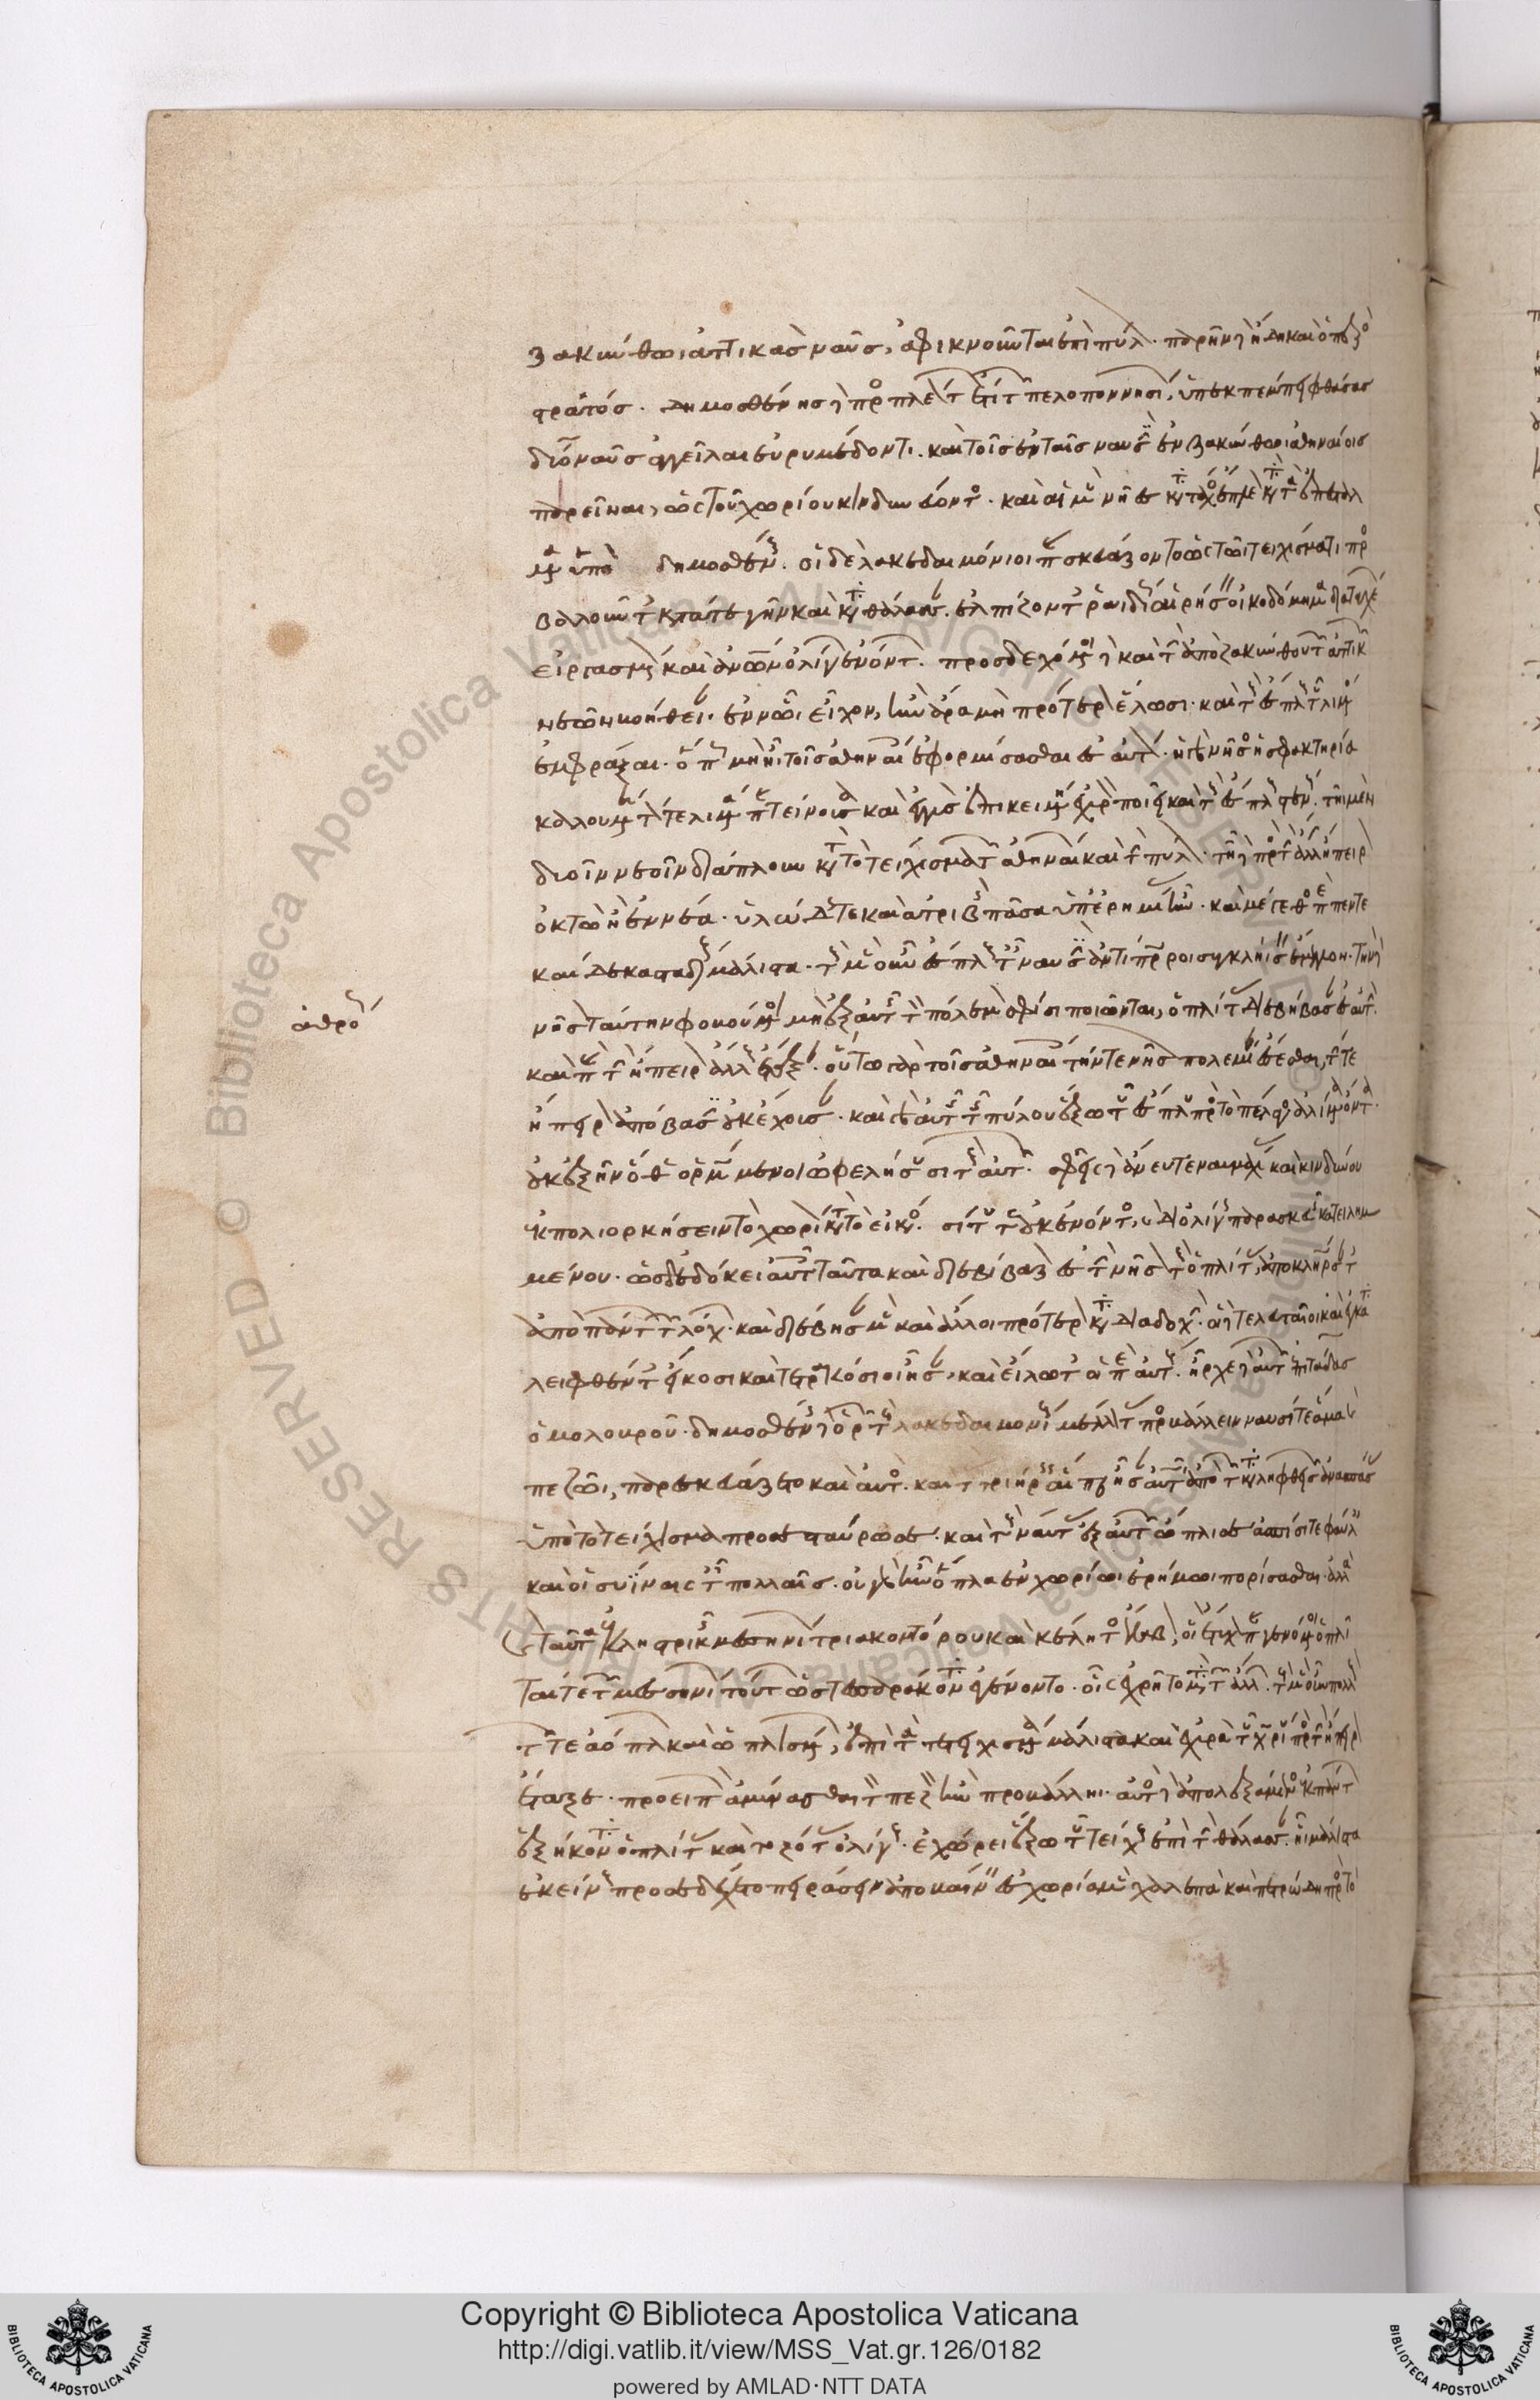 ζακύνθωι ἀττικὰς ναῦς, ἀφικνοῦνται ἐπὶ πύλον· παρῆν δὲ ἤδη καὶ ὁ πεζὸς
στρατός. δημοσθένης δὲ προσπλεόντων ἔτι τῶν πελοποννησίων, ὑπεκπέμπει φθάσας
δύο ναῦς ἀγγεῖλαι εὐρυμέδοντι καὶ τοῖς ἐν ταῖς ναυσὶν ἐν ζακύνθωι ἀθηναίοις
παρεῖναι, ὡς τοῦ χωρίου κινδυνεύοντος. καὶ αἱ μὲν νῆες κατὰ τάχος ἔπλεον κατὰ τὰ ἐπεσταλ
μένα ὑπὸ δημοσθένους. οἱ δὲ λακεδαιμόνιοι παρεσκευάζοντο ὡς τῶι τειχίσματι προσ
βαλλοῦντες κατά τε γῆν καὶ κατὰ θάλασσαν. ἐλπίζοντες ῥαιδίως αἱρήσειν οἰκοδόμημα διὰ ταχέων
εἰργασμένον καὶ ἀνθρώπων ὀλίγων ἐνόντων. προσδεχόμενοι δὲ καὶ τὴν ἀπὸ ζακύνθου τῶν ἀττικῶν
νεῶν βοήθειαν. ἐν νῶι εἶχον, ἢν ἄρα μὴ πρότερον ἕλωσι. καὶ τοὺς ἔσπλους τοῦ λιμένος
ἐμφράξαι. ὅπως μὴ ἦι τοῖς ἀθηναίοις ἐφορμίσασθαι ἐς αὐτόν. ἡ γὰρ νῆσος ἡ σφακτηρία
καλουμένη τόν τε λιμένα παρατείνουσα καὶ ἐγγὺς ἐπικειμένη ἐχυρὸν ποιεῖ καὶ τοὺς ἔσπλους στενούς. τῆι μὲν
δυοῖν νεοῖν διάπλουν κατὰ τὸ τείχισμα τῶν ἀθηναίων καὶ τὴν πύλον. τῆι δὲ πρὸς τὴν ἄλλην ἤπειρον
ὀκτὼ ἢ ἐννέα. ὑλώδης τε καὶ ἀτριβὴς πᾶσα ὑπ' ἐρημίας ἦν. καὶ μέγεθος περὶ πέντε
καὶ δέκα σταδίους μάλιστα. τοὺς μὲν οὖν ἔσπλους ταῖς ναυσὶν ἀντιπρώροις συγκλήισειν ἔμελλον. τὴν δὲ
νῆσον ταύτην φοβούμενοι μὴ ἐξ αὐτῆς τὸν πόλεμον σφίσι ποιῶνται, ὁπλίτας διεβίβασαν ἐς αὐτὴν
καὶ παρὰ τὴν ἤπειρον ἄλλους ἔταξαν. οὕτω γὰρ τοῖς ἀθηναίοις τήν τε νῆσον πολεμίαν ἔσεσθαι, τήν τε
ἤπειρον ἀπόβασιν οὐκ ἔχουσαν. καὶ τὰ αὐτῆς τῆς πύλου ἔξω τοῦ ἔσπλου πρὸς τὸ πέλαγος ἀλίμενα ὄντα.
οὐκ ἕξειν ὅθεν ὁρμώμενοι ὠφελήσουσι τοὺς αὐτῶν. σφεῖς δὲ ἄνευ τε ναυμαχίας καὶ κινδύνου
ἐκπολιορκήσειν τὸ χωρίον κατὰ τὸ εἰκός. σίτου τε οὐκ ἐνόντος, καὶ δι' ὀλίγης παρασκευῆς κατειλημ
μένου. ὡς δ' ἐδόκει αὐτοῖς ταῦτα καὶ διεβίβαζον ἐς τὴν νῆσον τοὺς ὁπλίτας, ἀποκληρώσαντες
ἀπὸ πάντων τῶν λόχων. καὶ διέβησαν μὲν καὶ ἄλλοι πρότερον κατὰ διαδοχήν. οἱ δὲ τελευταῖοι καὶ ἐγκατα
λειφθέντες εἴκοσι καὶ τετρακόσιοι ἦσαν, καὶ εἵλωτες οἱ περὶ αὐτούς. ἦρχε δὲ αὐτῶν ἐπιτάδας
ὁ μολούρου. δημοσθένης δὲ ὁρῶν τοὺς λακεδαιμονίους μέλλοντας προσβάλλειν ναυσί τε ἅμα καὶ
πεζῶι, παρεσκευάζετο καὶ αὐτός. καὶ τὰς τριήρεις αἳ περιῆσαν αὐτῶι ἀπὸ τῶν καταλειφθεισῶν ἀνασπάσας
ὑπὸ τὸ τείχισμα προσεσταύρωσε. καὶ τοὺς ναύτας ἐξ αὐτῶν ὥπλισεν ἀσπίσι τε φαύλαις
καὶ οἰσυΐναις ταῖς πολλαῖς. οὐ γὰρ ἦν ὅπλα ἐν χωρίωι ἐρήμωι πορίσασθαι. ἀλλὰ
καὶ ταῦτα ἐκ ληιστρικῆς μεσσηνίων τριακοντόρου καὶ κέλητος ἔλαβον, οἳ ἔτυχον παραγενόμενοι. ὁπλῖ
ταί τε τῶν μεσσηνίων τούτων ὡς τεσσαράκοντα ἐγένοντο. οἷς ἐχρῆτο μετὰ τῶν ἄλλων. τοὺς μὲν οὖν πολλοὺς
τῶν τε ἀόπλων καὶ ὡπλισμένων, ἐπὶ τὰ τετειχισμένα μάλιστα καὶ ἐχυρὰ τοῦ χωρίου πρὸς τὴν ἤπειρον
ἔταξε. προειπὼν ἀμύνασθαι τὸν πεζὸν ἢν προσβάλληι. αὐτὸς δὲ ἀπολεξάμενος ἐκ πάντων
ἑξήκοντα ὁπλίτας καὶ τοξότας ὀλίγους. ἐχώρει ἔξω τοῦ τείχους ἐπὶ τὴν θάλασσαν. ἧι μάλιστα
ἐκείνους προσεδέχετο πειράσειν ἀποβαίνειν ἐς χωρία μὲν χαλεπὰ καὶ πετρώδη πρὸς τὸ